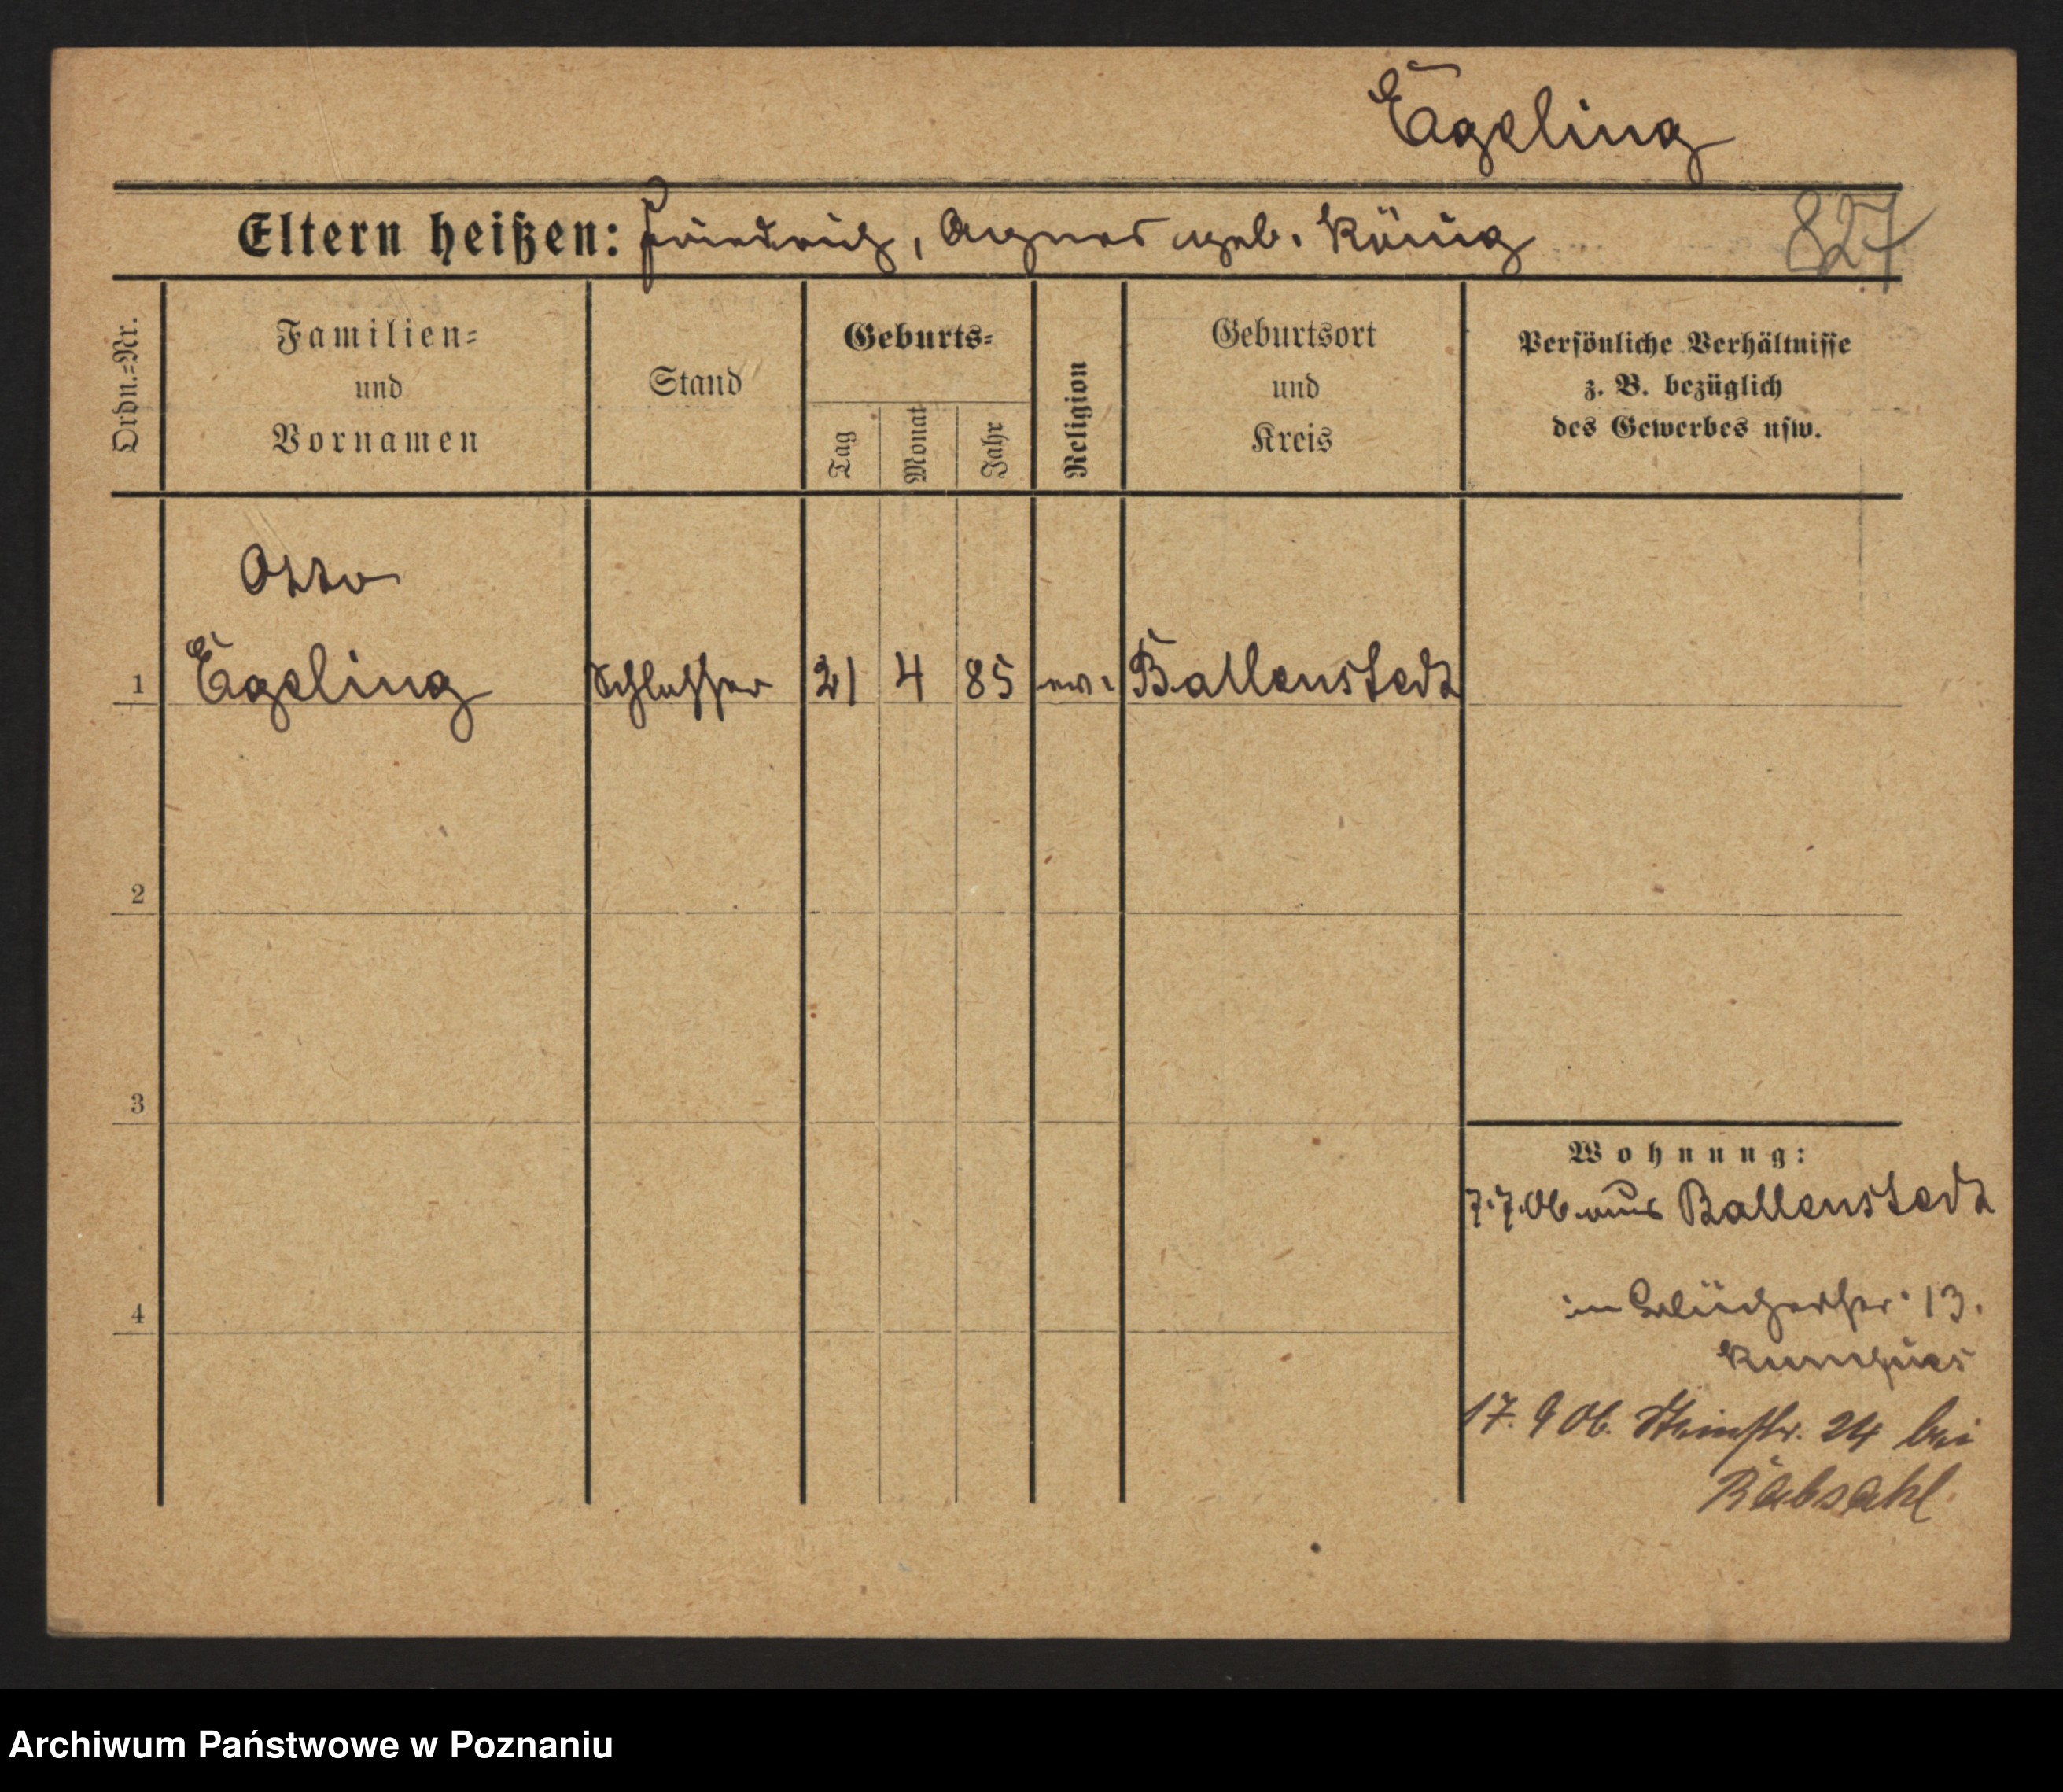 Egeling
Eltern heißen: Friedrich, Agnes geb. König
827
Ordn.=Nr.
Familien=
und
Vornamen
Stand
Geburts=
Tag
Monat
Jahr
Religion
Geburtsort
und
Kreis
Persönliche Verhältnisse
z. B. bezüglich
des Gewerbes usw.
Otto
1 Egeling Schlosser 21 4 85 ev. Ballenstedt
2
3
4
Wohnung:
7.7.06 aus Ballenstedt
in Blücherstr. 13.
17. 9 06. Steinstr. 24 bei
Rabsahl
Archiwum Państwowe w Poznaniu